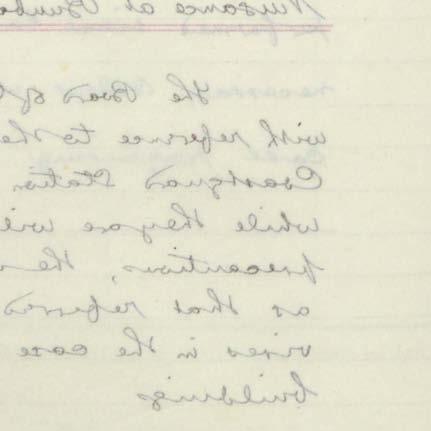 Nuisance at Bunbe
The Board of
with reference to the
Coastguard Station
while they are wil
precautions, the
as that referred
vises in the case
buildings